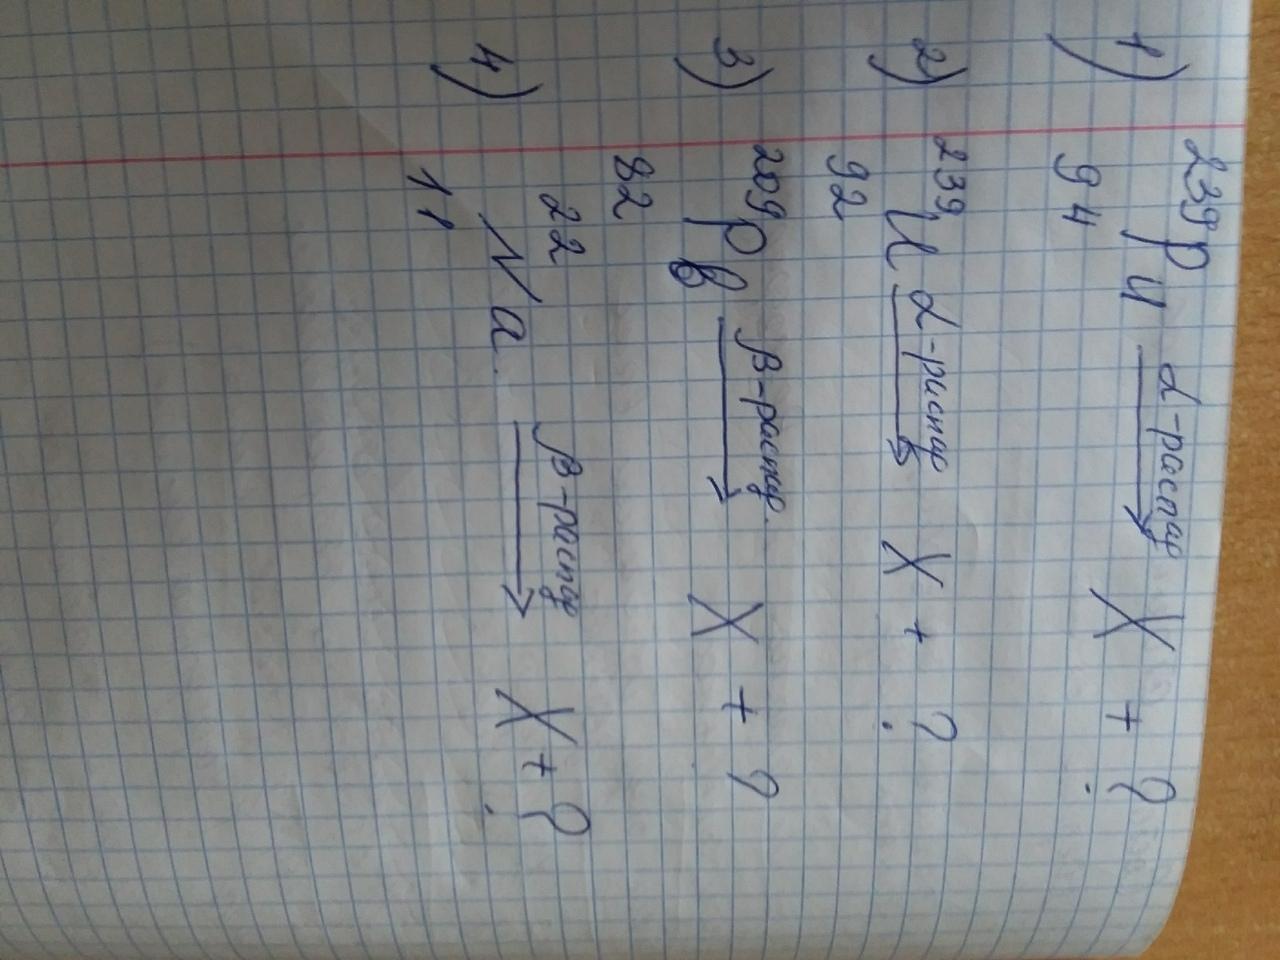 1) ²³⁹₉₄Pu α-распад → X + ?
2) ²³⁹₉₂U α-распад → X + ?
3) ²⁰⁹₈₂Pb β-распад. → X + ?
4) ²²₁₁Na β-распад → X + ?